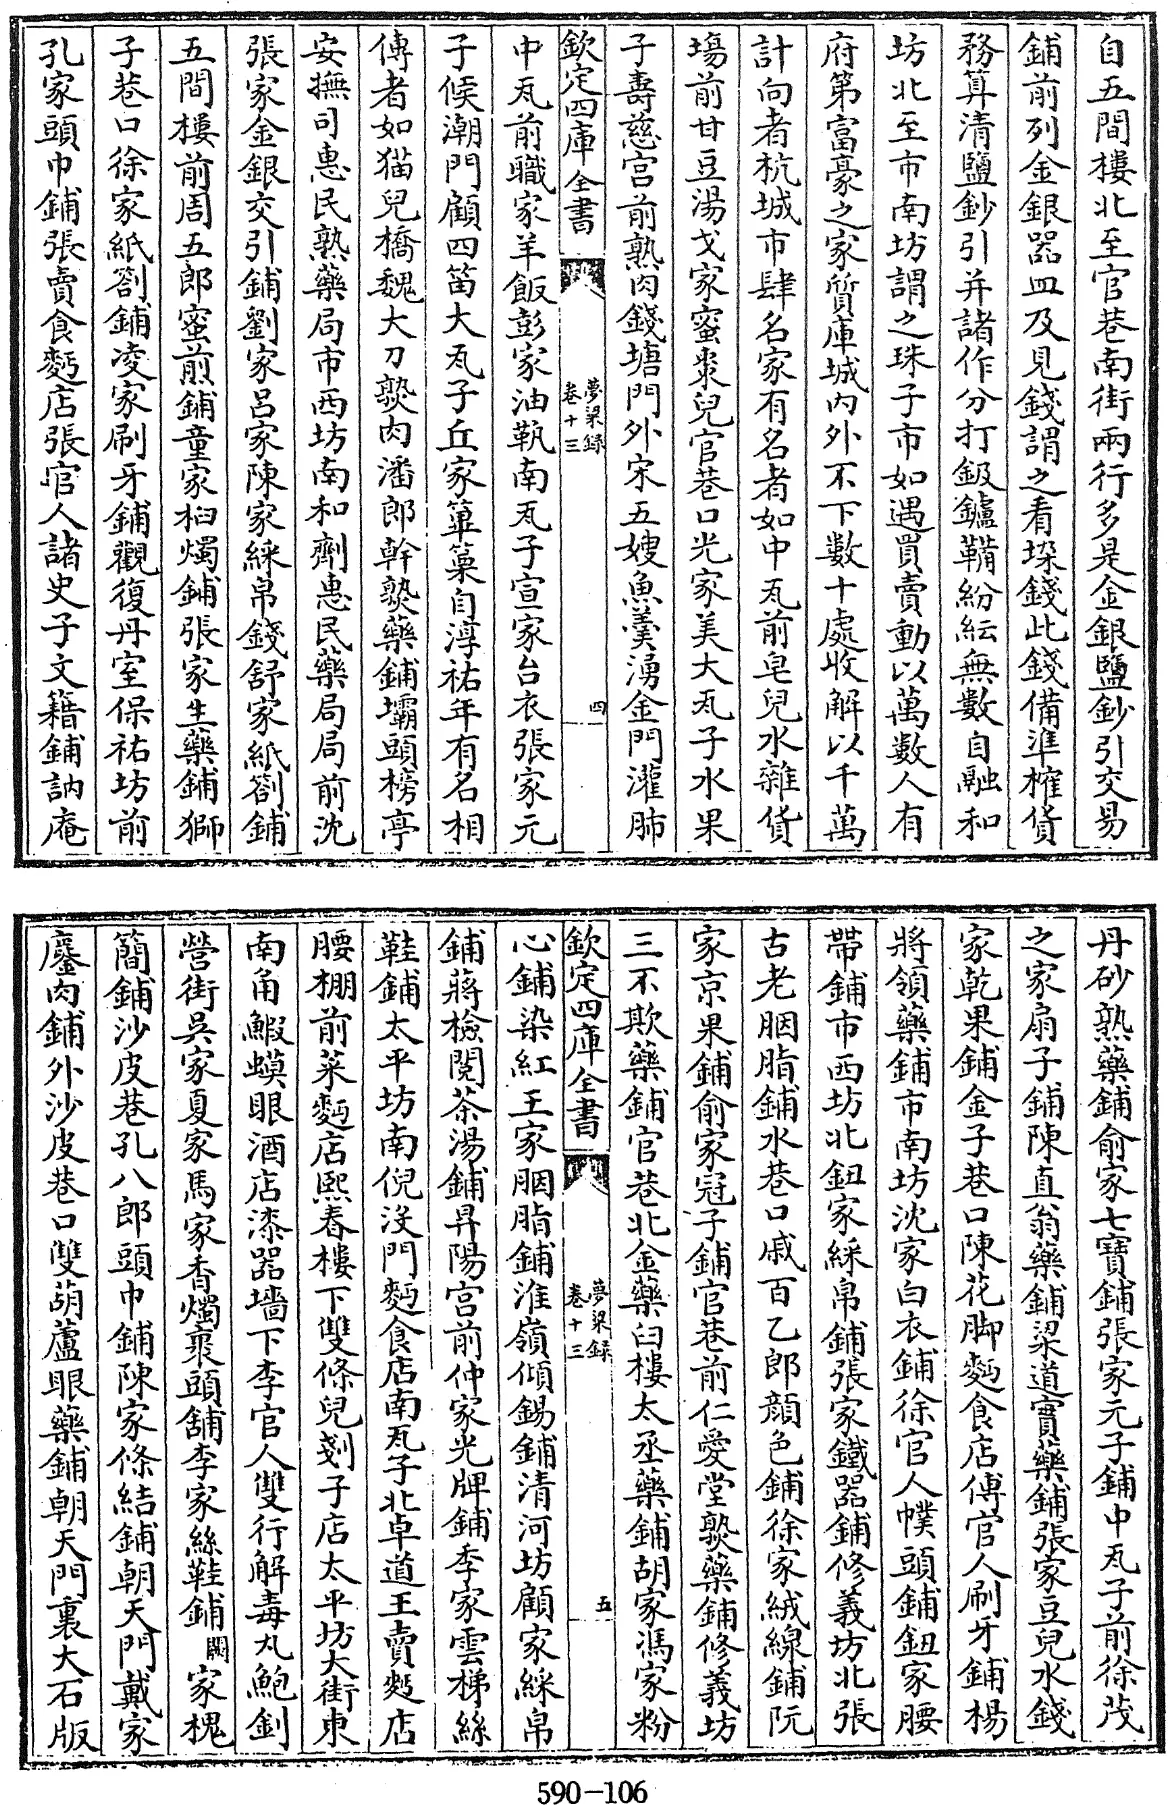 自五間樓北至官巷南街兩行多是金銀鹽鈔引交易
鋪前列金銀器皿及見錢謂之看垜錢此錢備準榷貨
務算清鹽鈔引并諸作分打鈒鑪鞴紛紜無數自融和
坊北至市南坊謂之珠子市如遇買賣動以萬數人有
府第富豪之家質庫城内外不下數十處收解以千萬
計向者杭城市肆名家有名者如中瓦前皂兒水雜貨
塲前甘豆湯戈家蜜棗兒官巷口光家美大瓦子水果
子壽慈宫前熟肉錢塘門外宋五嫂魚羮湧金門灌肺
欽定四庫全書
夢粱録
卷十三
四
中瓦前職家羊飯彭家油靴南瓦子宣家台衣張家元
子候潮門顧四笛大瓦子丘家篳篥自淳祐年有名相
傳者如猫兒橋魏大刀熟肉潘郎幹熟藥鋪壩頭榜亭
安撫司惠民熟藥局市西坊南和劑惠民藥局局前沈
張家金銀交引鋪劉家吕家陳家綵帛錢舒家紙劄鋪
五間樓前周五郎蜜煎鋪童家桕燭鋪張家生藥鋪獅
子巷口徐家紙劄鋪凌家刷牙鋪觀復丹室保祐坊前
孔家頭巾鋪張賣食麪店張官人諸史子文籍鋪訥庵
丹砂熟藥鋪俞家七寶鋪張家元子鋪中瓦子前徐茂
之家扇子鋪陳直翁藥鋪梁道實藥鋪張家豆兒水錢
家乾果鋪金子巷口陳花脚麪食店傅官人刷牙鋪楊
將領藥鋪市南坊沈家白衣鋪徐官人幞頭鋪鈕家腰
帶鋪市西坊北鈕家綵帛鋪張家鐵器鋪修義坊北張
古老胭脂鋪水巷口戚百乙郎顔色鋪徐家絨線鋪阮
家京果鋪俞家冠子鋪官巷前仁愛堂熟藥鋪修義坊
三不欺藥鋪官巷北金藥臼樓太丞藥鋪胡家馮家粉
欽定四庫全書
夢粱録
卷十三
五
心鋪染紅王家胭脂鋪淮嶺傾錫鋪清河坊顧家綵帛
鋪蔣檢閲茶湯鋪昇陽宫前仲家光牌鋪季家雲梯絲
鞋鋪太平坊南倪没門麪食店南瓦子北卓道王賣麪店
腰棚前菜麪店熙春樓下雙條兒剗子店太平坊大街東
南角鰕蟆眼酒店漆器墻下李官人雙行解毒丸鮑釗
營街吳家夏家馬家香燭裹頭舖李家絲鞋鋪闕家槐
簡鋪沙皮巷孔八郎頭巾鋪陳家絛結鋪朝天門戴家
鏖肉鋪外沙皮巷口雙葫蘆眼藥鋪朝天門裏大石版
590-106